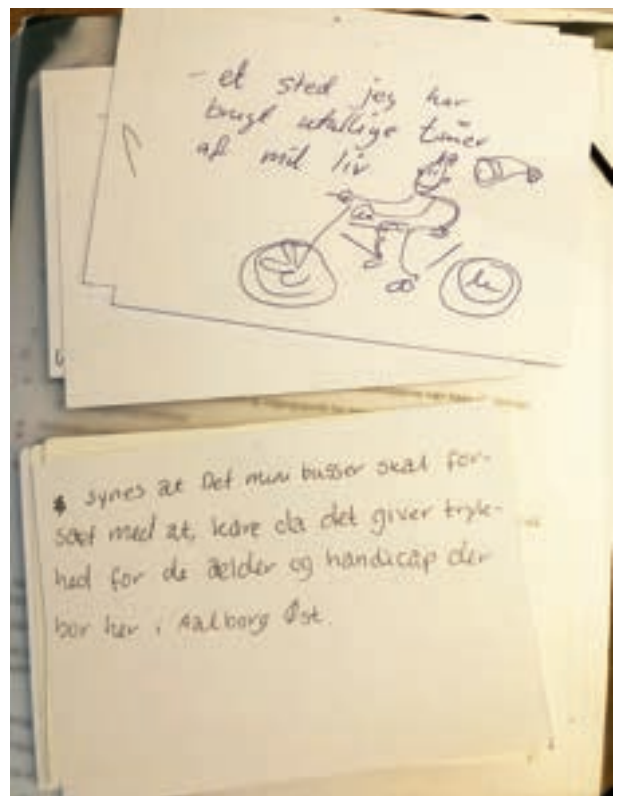 - et sted jeg har
brugt utallige timer
af mit liv
synes at Det mini busser skal for-
sæt med at, køre da det giver tryk-
hed for de ælder og handicap der
bor her i Aalborg Øst.